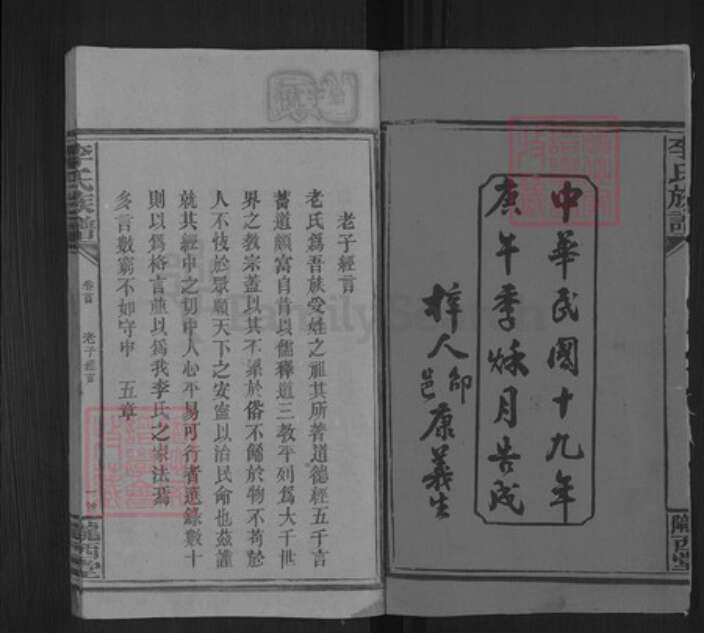 李氏族譜
隴西堂
中華民國十九年
庚午季秌月告成
梓人邵邑康義生
老子經言
老氏爲吾族受姓之祖其所著道德經五千言
蓄道頗富自昔以儒釋道三教平列爲大千世
界之教宗蓋以其不累於俗不飾於物不苟於
人不忮於眾願天下之安寧以治民命也茲謹
就其經中之切中人心平易可行者選錄數十
則以爲格言並以爲我李氏之家法焉
多言數窮不如守中 五章
李氏族譜
卷首 老子經言
隴西堂
FamilySearch